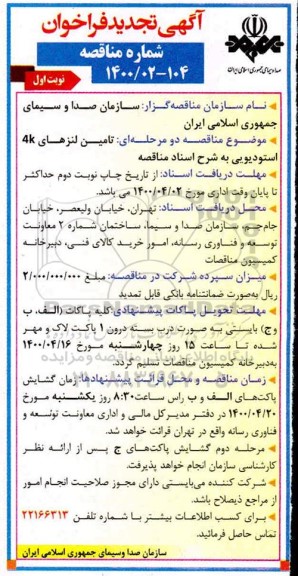 صدا و سیمای جمهوری اسلامی ایران
آگهی تجدید فراخوان
شماره مناقصه
۱۴۰۰/۰۲-۱۰۴
نوبت اول
نام سازمان مناقصه‌گزار: سازمان صدا و سیمای
جمهوری اسلامی ایران
موضوع مناقصه دو مرحله‌ای: تامین لنزهای 4k
استودیویی به شرح اسناد مناقصه
مهلت دریافت اسناد: از تاریخ چاپ نوبت دوم حداکثر
تا پایان وقت اداری مورخ ۱۴۰۰/۰۴/۰۲ می باشد.
محل دریافت اسناد: تهران، خیابان ولیعصر، خیابان
جام‌جم، سازمان صدا و سیما، ساختمان شماره ۲ معاونت
توسعه و فناوری رسانه، امور خرید کالای فنی، دبیرخانه
کمیسیون مناقصات
میزان سپرده شرکت در مناقصه: مبلغ ۲/۰۰۰/۰۰۰/۰۰۰
ریال به‌صورت ضمانتنامه بانکی قابل تمدید
مهلت تحویل پاکات پیشنهادی کلیه پاکات (الف، ب
و ج) بایستی به صورت درب بسته درون ۱ پاکت لاک و مهر
شده تا ساعت ۱۵ روز چهارشنبه مورخ ۱۴۰۰/۰۴/۱۶
به‌دبیرخانه کمیسیون مناقصات تسلیم گردد.
زمان مناقصه و محل قرائت پیشنهادها: زمان گشایش
پاکت‌های الف و ب راس ساعت ۸:۳۰ روز یکشنبه مورخ
۱۴۰۰/۰۴/۲۰ در دفتر مدیرکل مالی و اداری معاونت توسعه و
فناوری رسانه واقع در تهران قرائت خواهد شد.
مرحله دوم گشایش پاکت‌های ج پس از ارائه نظر
کارشناسی سازمان انجام خواهد پذیرفت.
شرکت کننده می‌بایستی دارای مجوز صلاحیت انجام امور
از مراجع ذیصلاح باشد.
برای کسب اطلاعات بیشتر با شماره تلفن ۲۲۱۶۶۳۱۳
تماس حاصل فرمائید.
سازمان صدا وسیمای جمهوری اسلامی ایران